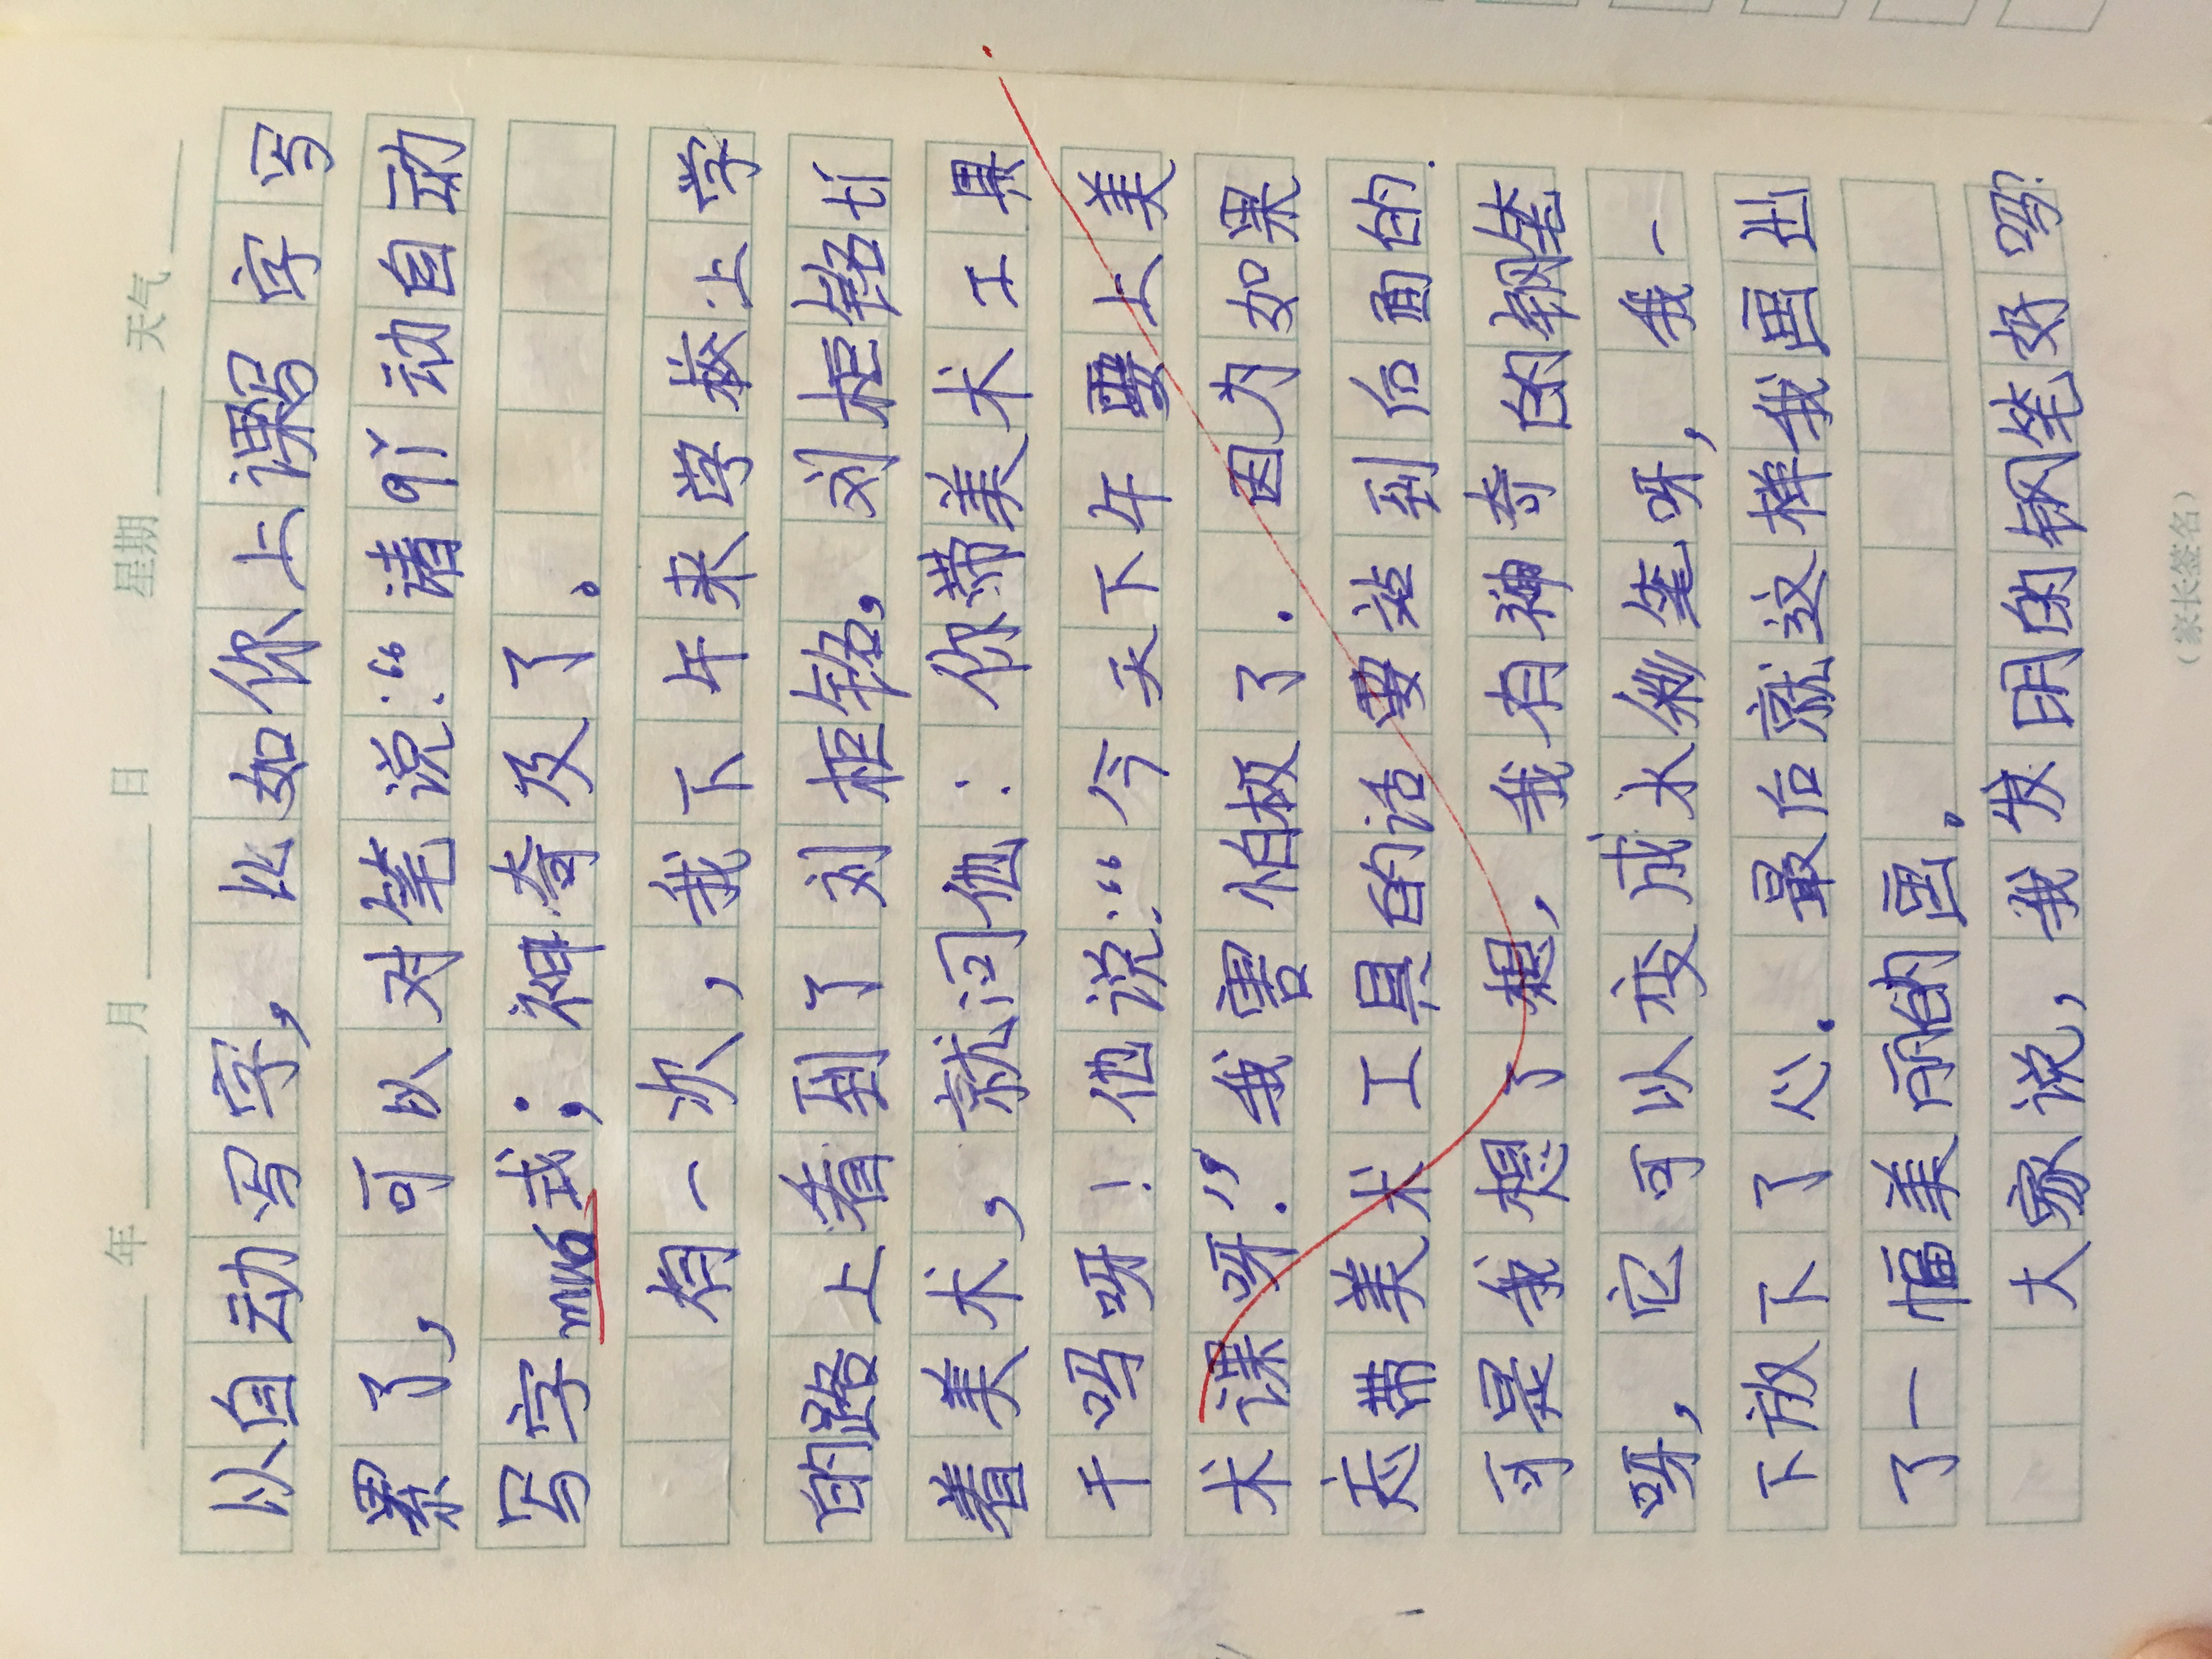 年 月 日 星期 天气
以自动写字，比如你上课写字写
累了，可以对笔说：“请qǐ动自动
写字mu6式；神奇及了。
有一次，我下午来学校上学
的路上看到了刘柜铭，刘柜铭tí
着美术，就问他：你带美术工具
干吗呀！他说：“今天下午要上美
术课呀！”我害怕极了．因为如果
忘带美术工具的话要站到后面的．
可是我想了想，我有神奇的钢笔
呀，它可以变成水彩笔呀，我一
下放下了心．最后就这样我画出
了一幅美丽的画。
大家说，我发明的钢笔好吗？
（家长签名）